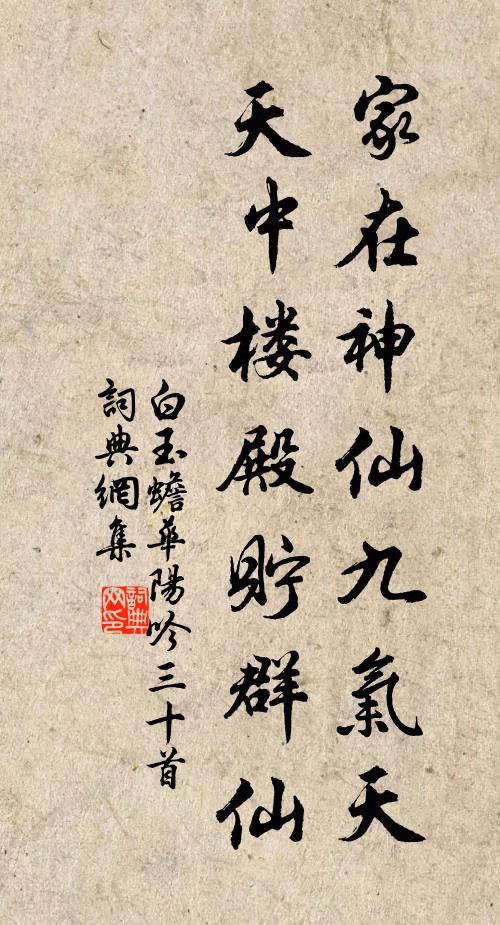 家在神仙九氣天
天中楼殿貯群仙
白玉蟾華陽吟三十首
詞典網集
詞典
网印